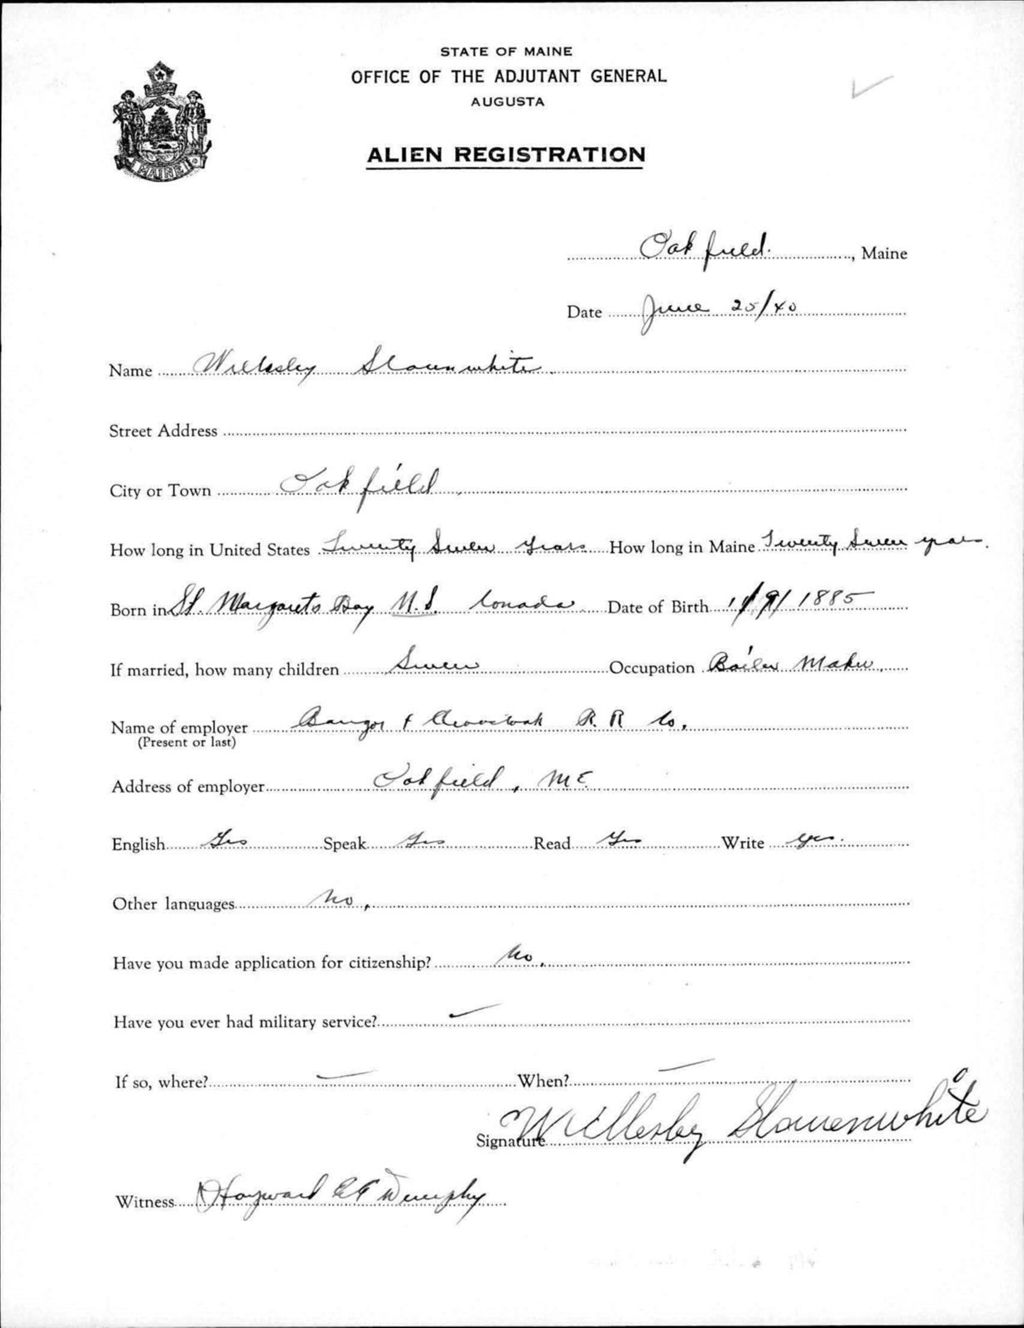 STATE OF MAINE
OFFICE OF THE ADJUTANT GENERAL
AUGUSTA
ALIEN REGISTRATION
MAINE
Oakfield, Maine
Date June 25/40
Name Willesley Slaunwhite
Street Address
City or Town Oakfield
How long in United States Twenty Seven Years How long in Maine Twenty Seven years
Born in St. Margarets Bay N.S. Canada Date of Birth 11/9/1885
If married, how many children Seven Occupation Boiler Maker
Name of employer Bangor & Aroostook R. R. Co.
(Present or last)
Address of employer Oakfield, ME.
English Yes Speak Yes Read Yes Write yes.
Other languages No,
Have you made application for citizenship? No,
Have you ever had military service? —
If so, where? — When? —
Signature Willesley Slauenwhite
Witness Hayward